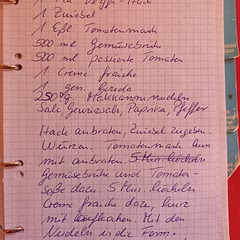 1 Zwiebel
1 Eßl Tomatenmark
500 ml Gemüsebrühe
500 ml passierte Tomaten
1 Creme fraiche
1 gem.
250 g. Makkaroninudeln
Salz, Gewürzsalz, Paprika, Pfeffer
Hack anbraten, Zwiebel zugeben.
Würzen. Tomatenmark kurz
mit anbraten.
Gemüsebrühe und Tomaten-
soße dazu, 5 Min. köcheln.
Creme fraiche dazu, kurz
mit aufkochen. Mit den
Nudeln in die Form.